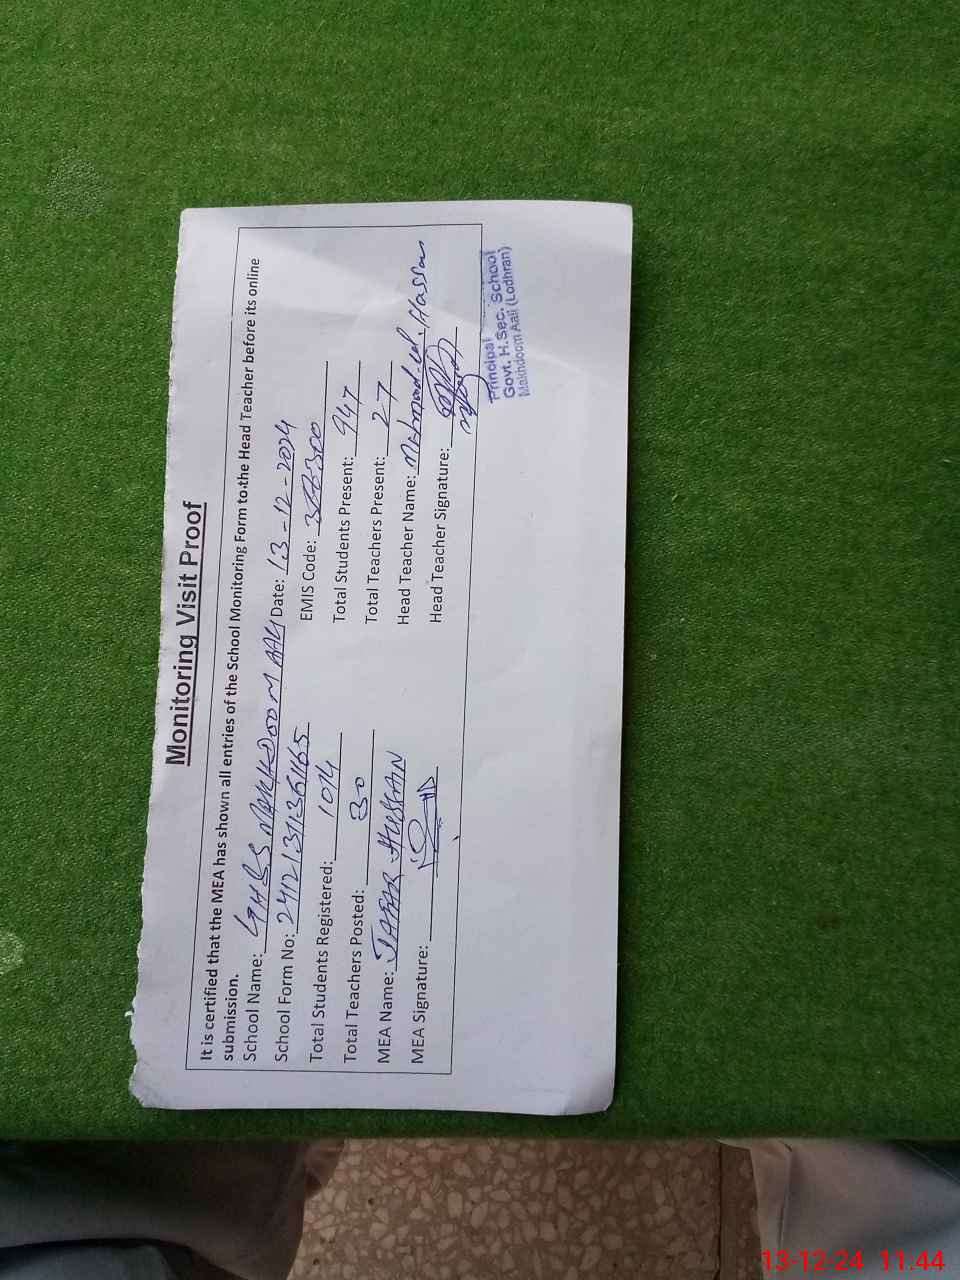 Monitoring Visit Proof
It is certified that the MEA has shown all entries of the School Monitoring Form to the Head Teacher before its online
submission.
School Name: GHSS MAKHDOOM AALI Date: 13-12-2024
School Form No: EMIS Code:
Total Students Registered: 1014 Total Students Present: 947
Total Teachers Posted: 30 Total Teachers Present: 27
MEA Name: JAFAR HUSSAN Head Teacher Name: Mehmood-ul-Hassan
MEA Signature: Head Teacher Signature:
Principal
Govt. H.Sec. School
Makhdoom Aali (Lodhran)
13-12-24 11.44